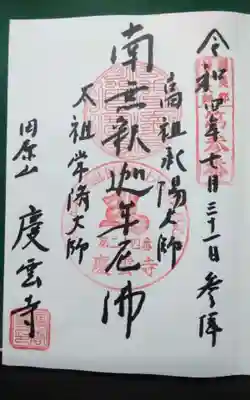 令和四年七月三十一日 参拝
高祖承陽大師
南無釈迦牟尼佛
太祖常済大師
田原山
慶雲寺